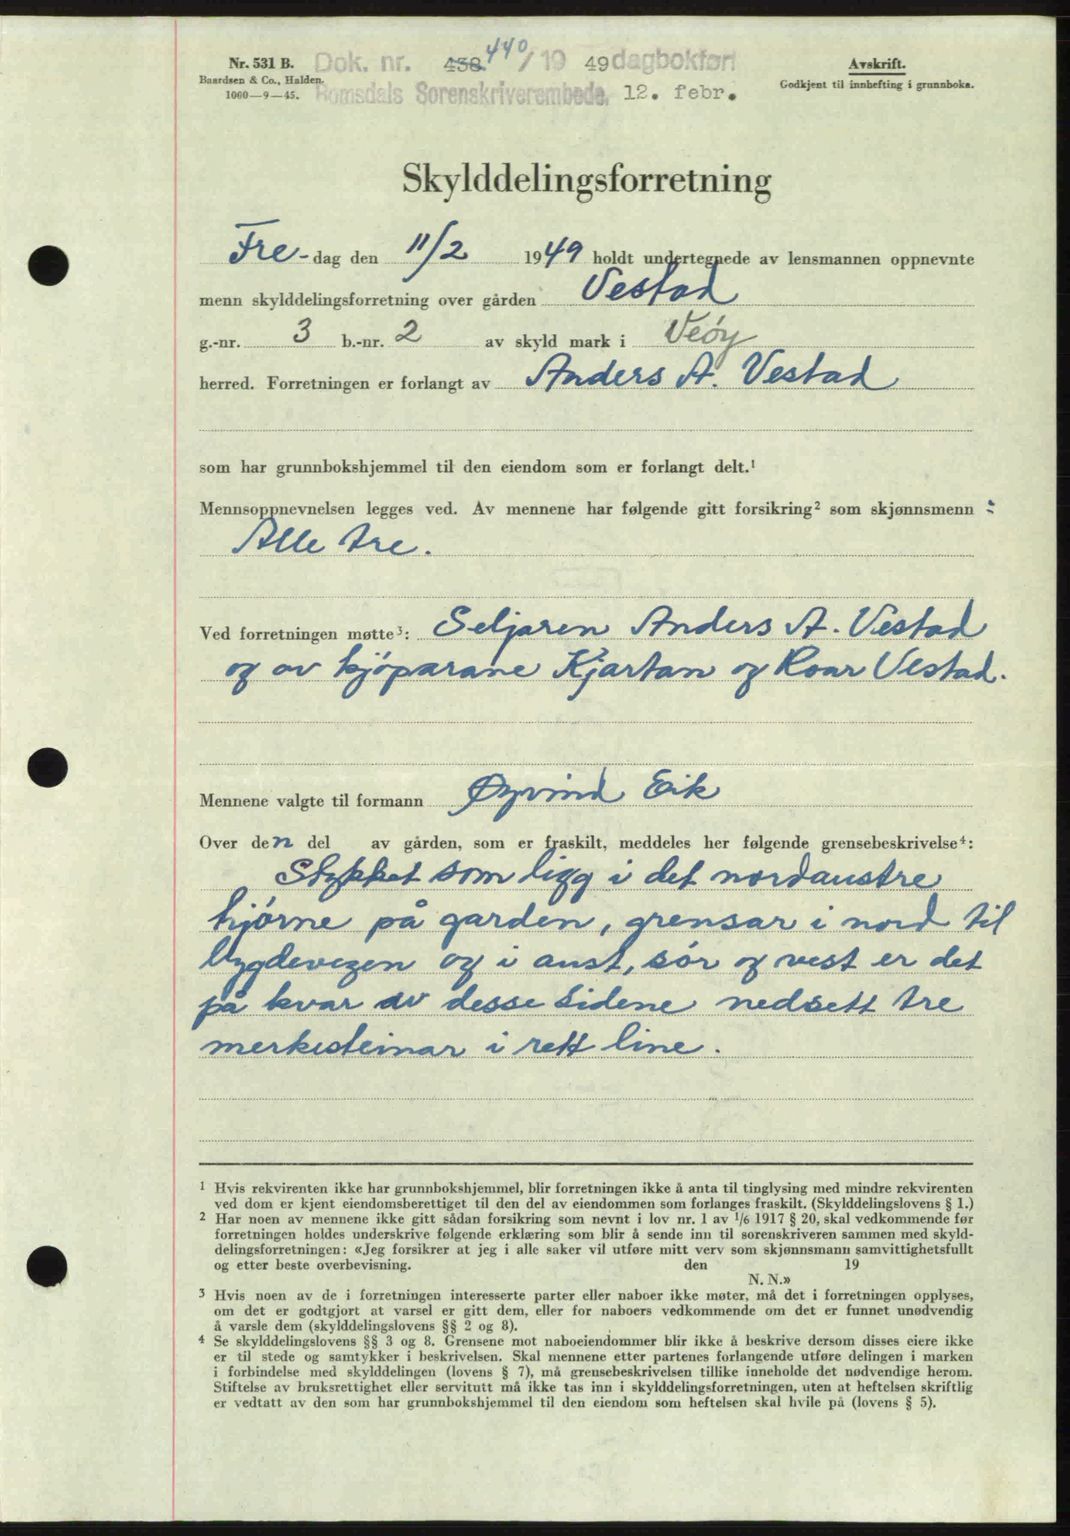 Nr. 531 B.
Baardsen & Co., Halden.
1000—9—45.
Dok. nr. 438. 440/19 49 dagbokført
Romsdals Sorenskriverembede. 12. febr.
Avskrift.
Godkjent til innhefting i grunnboka.
Skylddelingsforretning
Fre- dag den 11/2 1949 holdt undertegnede av lensmannen oppnevnte
menn skylddelingsforretning over gården Vestad
g.-nr. 3 b.-nr. 2 av skyld mark i Veøy
herred. Forretningen er forlangt av Anders A. Vestad
som har grunnbokshjemmel til den eiendom som er forlangt delt.¹
Mennsoppnevnelsen legges ved. Av mennene har følgende gitt forsikring² som skjønnsmenn :
Alle tre.
Ved forretningen møtte³: Seljaren Anders A. Vestad
og av kjøparane Kjartan og Roar Vestad.
Mennene valgte til formann Øyvind Eik
Over den del av gården, som er fraskilt, meddeles her følgende grensebeskrivelse⁴:
Stykket som ligg i det nordaustre
hjørne på garden, grensar i nord til
bygdevegen og i aust, sør og vest er det
på kvar av desse sidene nedsett tre
merkesteinar i rett line.
¹ Hvis rekvirenten ikke har grunnbokshjemmel, blir forretningen ikke å anta til tinglysing med mindre rekvirenten
ved dom er kjent eiendomsberettiget til den del av eiendommen som forlanges fraskilt. (Skylddelingslovens § 1.)
² Har noen av mennene ikke gitt sådan forsikring som nevnt i lov nr. 1 av 1/6 1917 § 20, skal vedkommende før
forretningen holdes underskrive følgende erklæring som blir å sende inn til sorenskriveren sammen med skyld-
delingsforretningen: «Jeg forsikrer at jeg i alle saker vil utføre mitt verv som skjønnsmann samvittighetsfullt
og etter beste overbevisning. den 19
N. N.»
³ Hvis noen av de i forretningen interesserte parter eller naboer ikke møter, må det i forretningen opplyses,
om det er godtgjort at varsel er gitt dem, eller for naboers vedkommende om det er funnet unødvendig
å varsle dem (skylddelingslovens §§ 2 og 8).
⁴ Se skylddelingslovens §§ 3 og 8. Grensene mot naboeiendommer blir ikke å beskrive dersom disses eiere ikke
er til stede og samtykker i beskrivelsen. Skal mennene etter partenes forlangende utføre delingen i marken
i forbindelse med skylddelingen (lovens § 7), må grensebeskrivelsen tillike inneholde det nødvendige herom.
Stiftelse av bruksrettighet eller servitutt må ikke tas inn i skylddelingsforretningen, uten at heftelsen skriftlig
er vedtatt av den som har grunnbokshjemmel til den eiendom som heftelsen skal hvile på (lovens § 5).